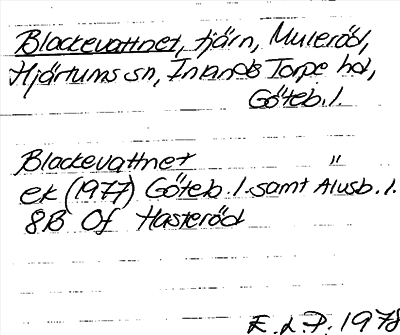 Blackevattnet, tjärn, Muleröd,
Hjärtums sn, Inlands Torpe hd,
Göteb. l.
Blackevattnet "
ek (1977) Göteb. l. samt Älvsb. l.
8B 0f Hasteröd
E. L. P. 1978